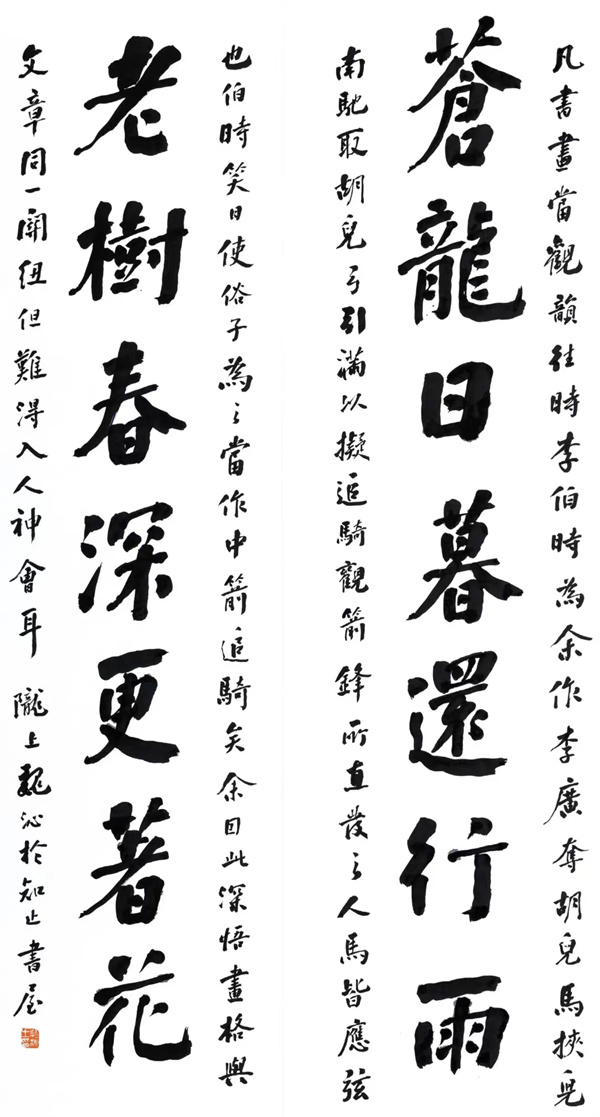 凡書畫當觀韻往時李伯時為余作李廣奪胡兒馬挾兒
蒼龍日暮還行雨
南馳取胡兒弓引滿以擬追騎觀箭鋒所直發之人馬皆應弦
也伯時笑曰使俗子為之當作中箭追騎矣余因此深悟畫格與
老樹春深更著花
文章同一關紐但難得入人神會耳 隴上魏沁於知止書屋